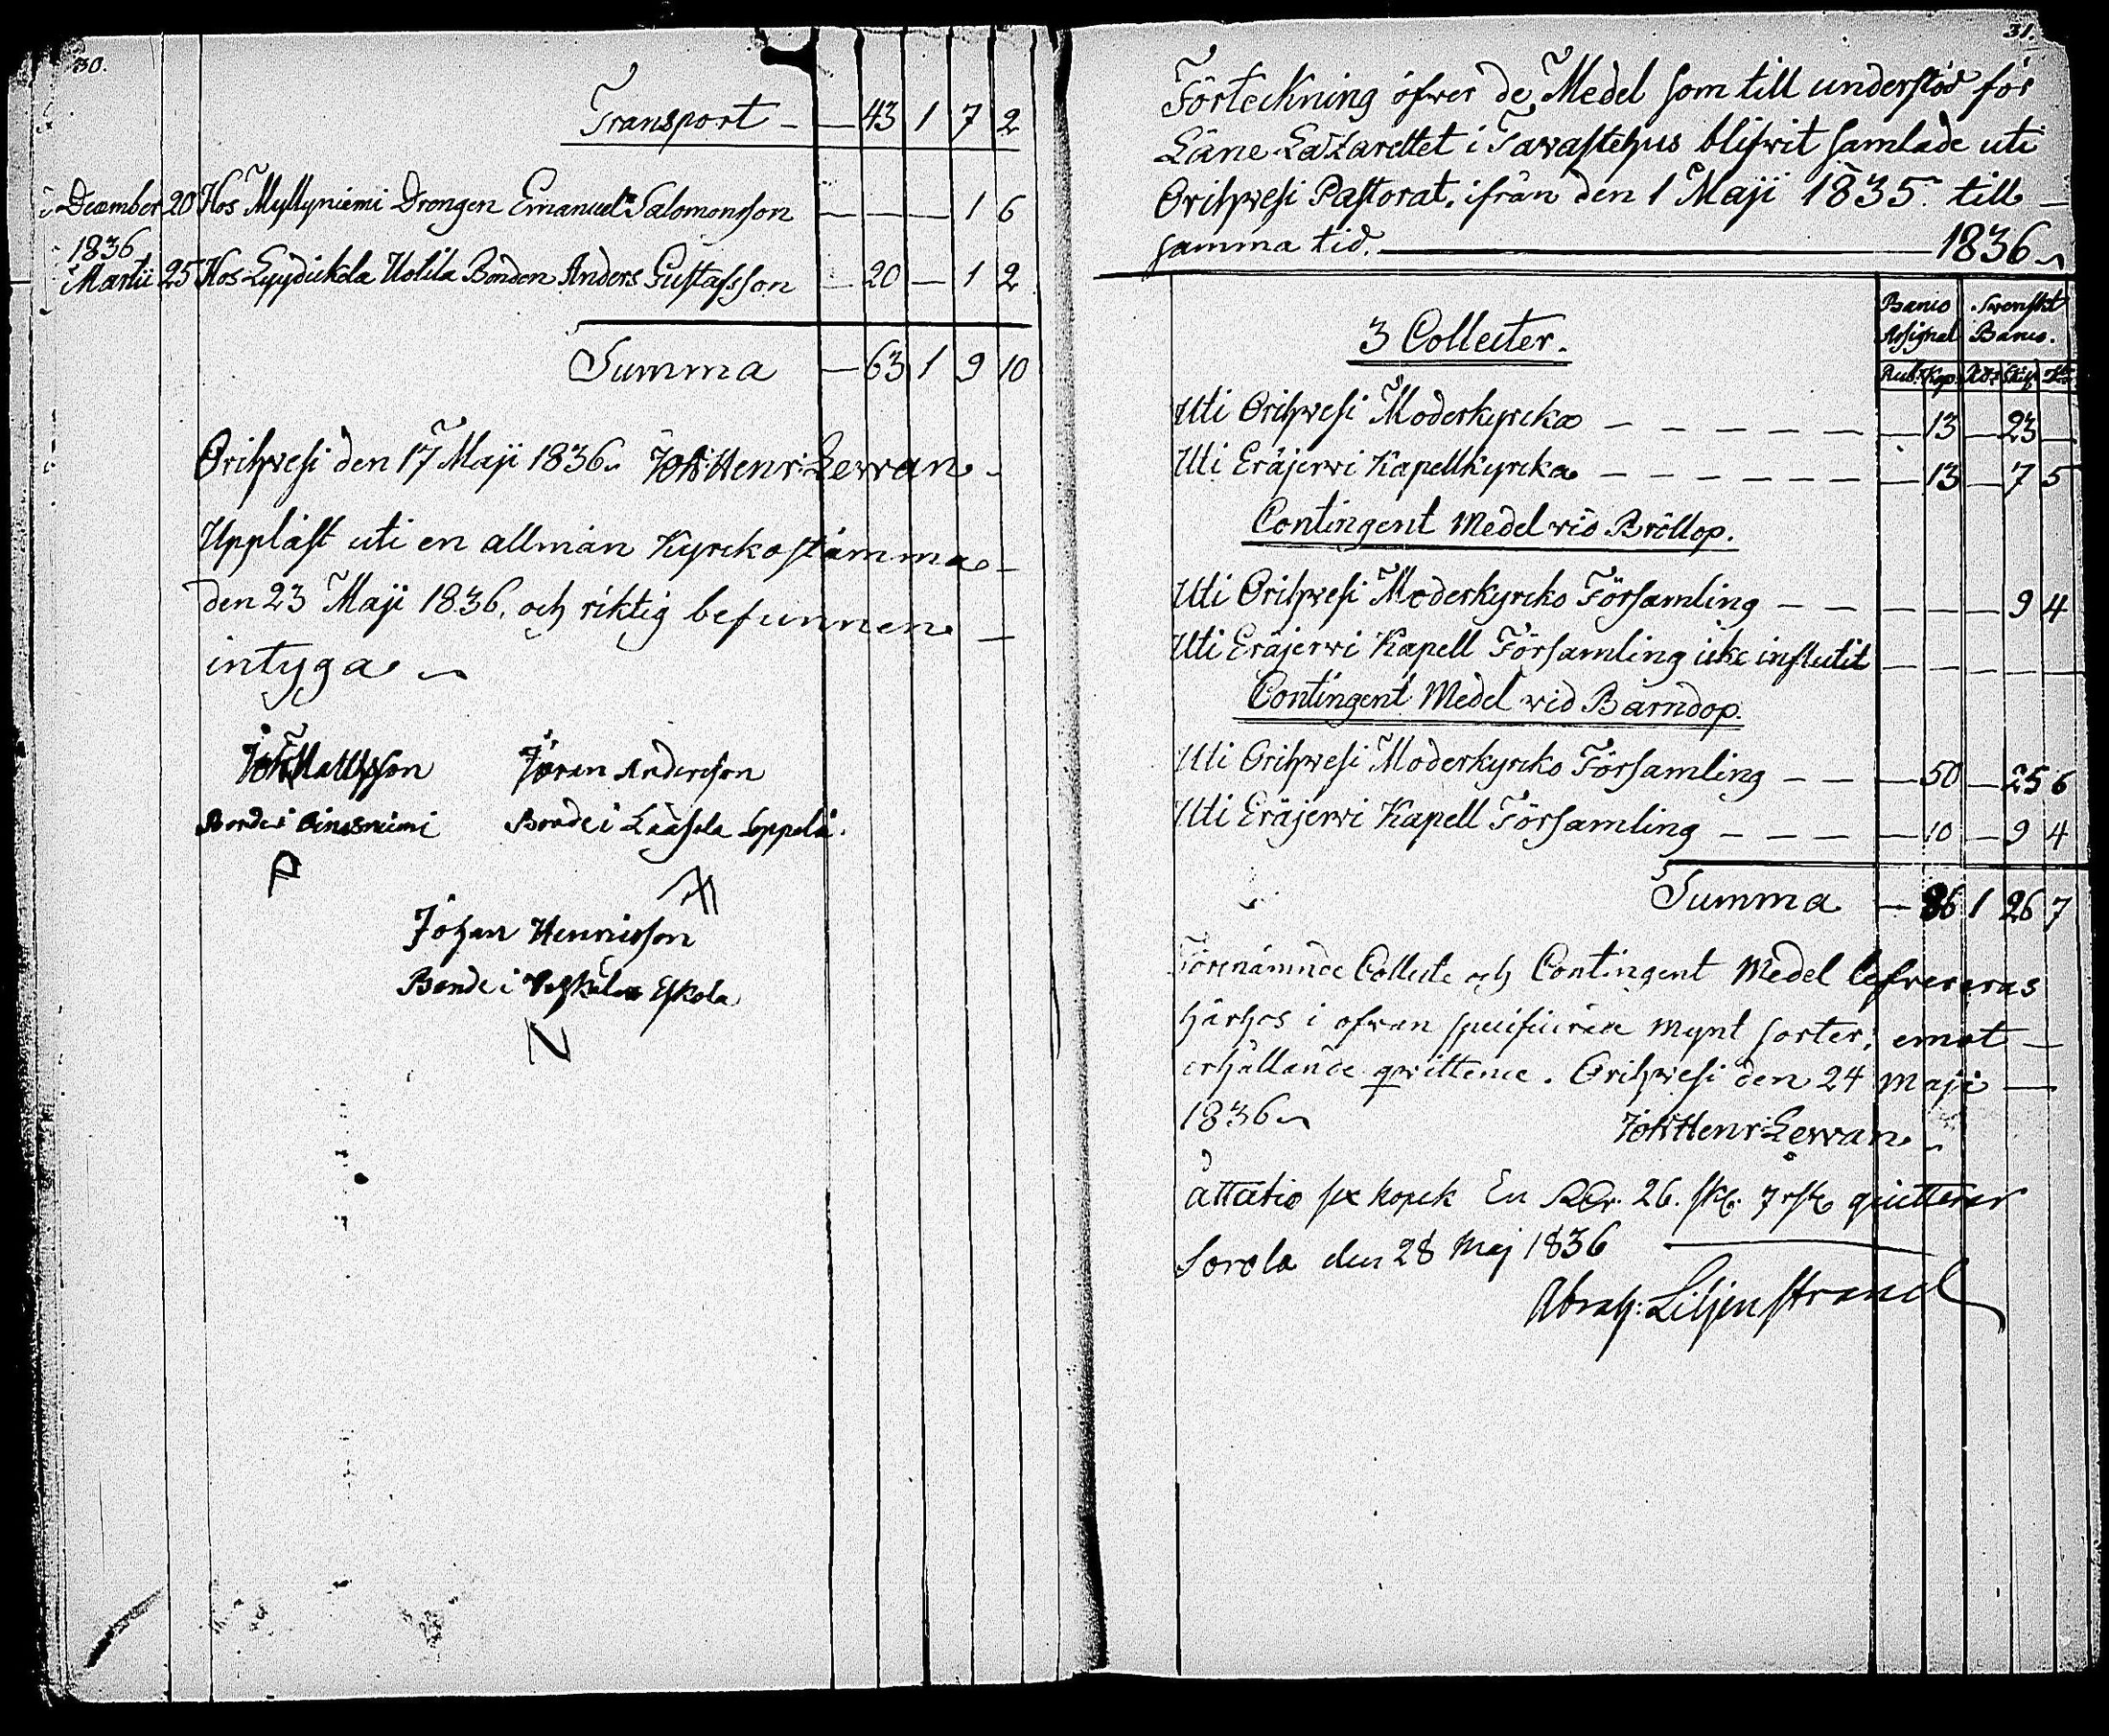 30.
Transport - — 43 1 7 2
December 20 Hos Myllyniemi Drengen Emanuel Salomonsson — — — 1 6
1836
Martii 25 Hos Lyydikälä Uotila Bonden Anders Gustafsson — 20 — 1 2
Summa — 63 1 9 10
Orihwesi den 17 Maji 1836. Joh: Henr: Lewan.
Uppläst uti en allmän Kyrckostämma —
den 23 Maji 1836, och riktig befunnen —
intyga
Joh: Mattsson Jöran Andersson
Bonde i Bonde i Lääselä Seppälä.
Johan Henricsson
Bonde i Eskola
N
31.
Förteckning öfwer de Medel som till understöd för
Läne Lazarettet i Tawastehus blifwit samlade uti
Orihwesi Pastorat, ifrån den 1 Maji 1835 till —
samma tid. — 1836
Banco Swenskt
Assignat Banco.
Rub: Kop: Rdr Skill. rst.
3 Collecter.
Uti Orihwesi Moderkyrcka — — — — — — 13 — 23 —
Uti Eräjerwi Kapellkyrcka — — — — — — 13 — 7 5
Contingent Medel wid Bröllop.
Uti Orihwesi Moderkyrcko Församling — — — — — 9 4
Uti Eräjerwi Kapell Församling icke influtit — — — — —
Contingent Medel wid Barndop.
Uti Orihwesi Moderkyrcko Församling — — — 50 — 25 6
Uti Eräjerwi Kapell Församling — — — — 10 — 9 4
Summa — 86 1 26 7
Förenämnde Collecte och Contingent Medel lefwereras
härhos i ofwan specificirade mynt sorter, emot —
erhållande qwittence. Orihwesi den 24 Maji —
1836 Joh: Henr: Lewan.
åttatio sex kopek En RDr. 26. sk. 7 rst. quitterar
Sorola den 28 Maj 1836
Abrah: Liljenstrand